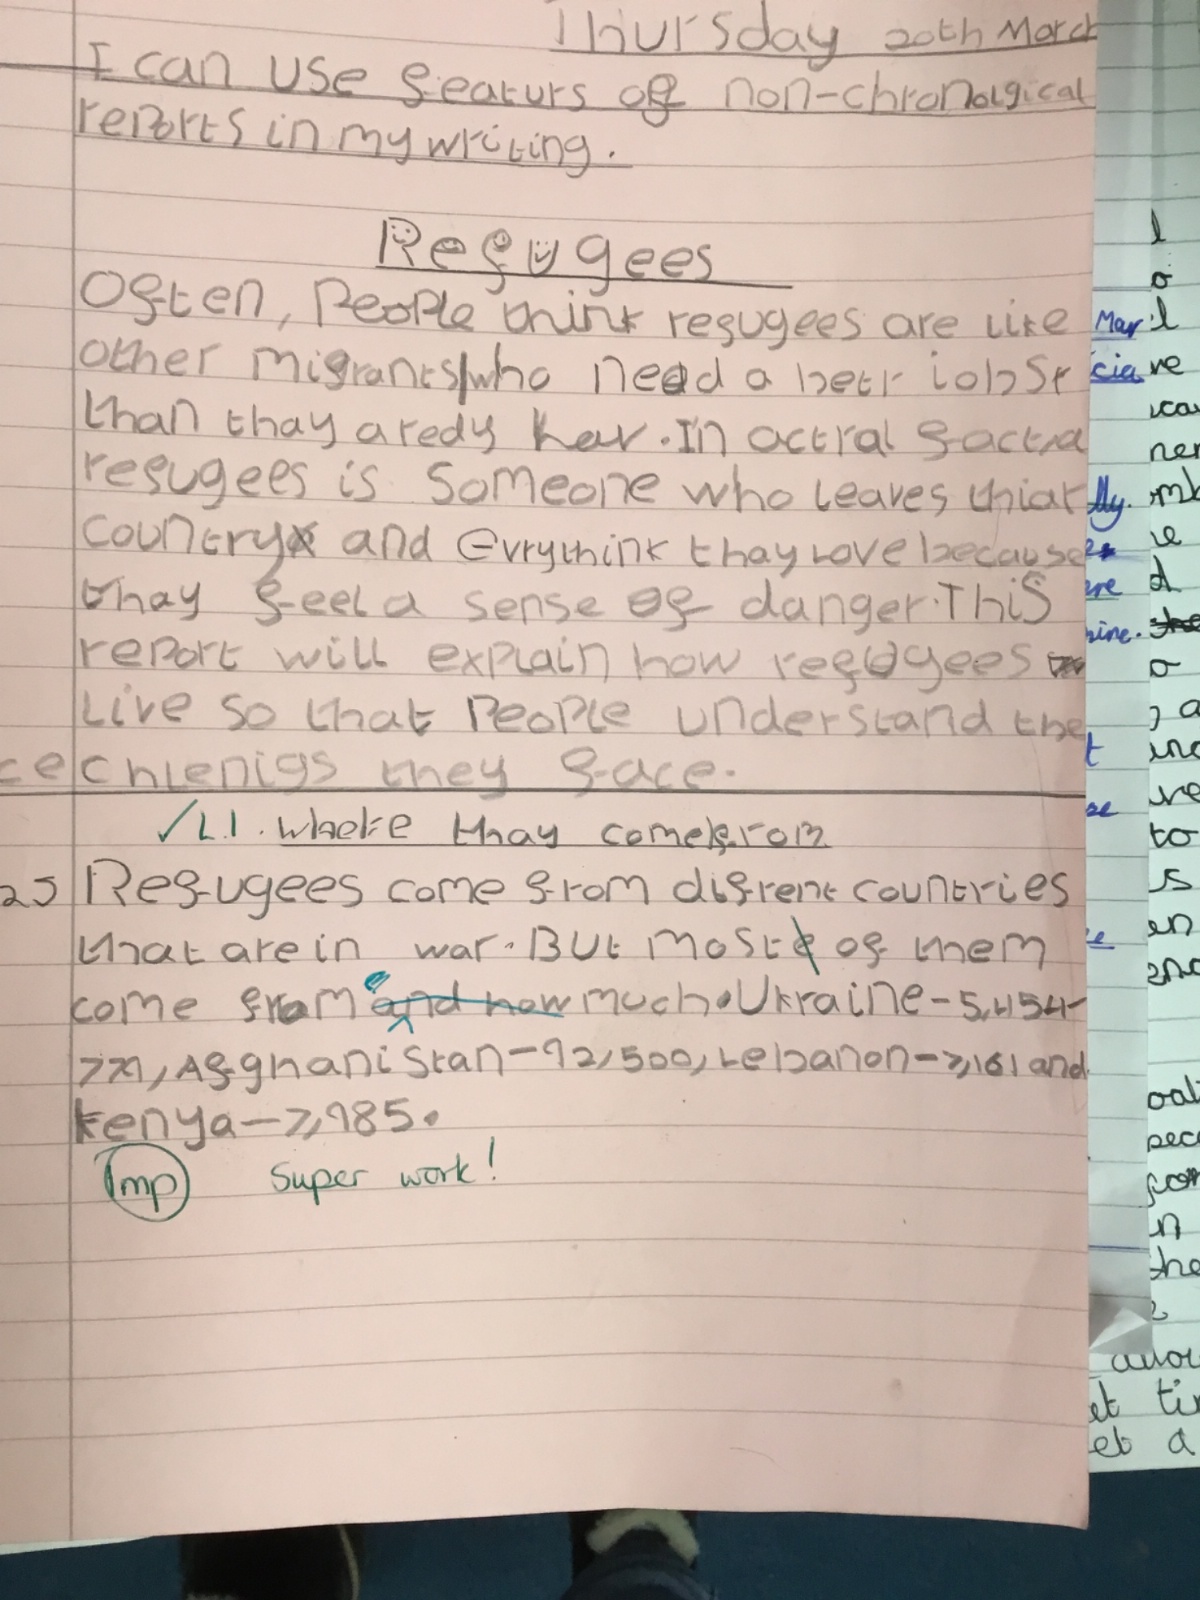 Thursday 20th March
I can use featurs of non-chronolgical
reports in my writing.
Refugees
Often, People think refugees are like
other migrants who need a betr
than thay aredy hav. In actral fact a
refugees is someone who leaves thiar
country and Evrythink thay love because
thay feel a sense of danger. This
report will explain how refugees
Live so that People understand the
chlenigs they face.
✓ L.I. where thay come from
Refugees come from difrent countries
that are in war. But most of them
come from much. Ukraine-5,454-
Afghanistan-92,500, Lebanon- and
Kenya-
Imp Super work!